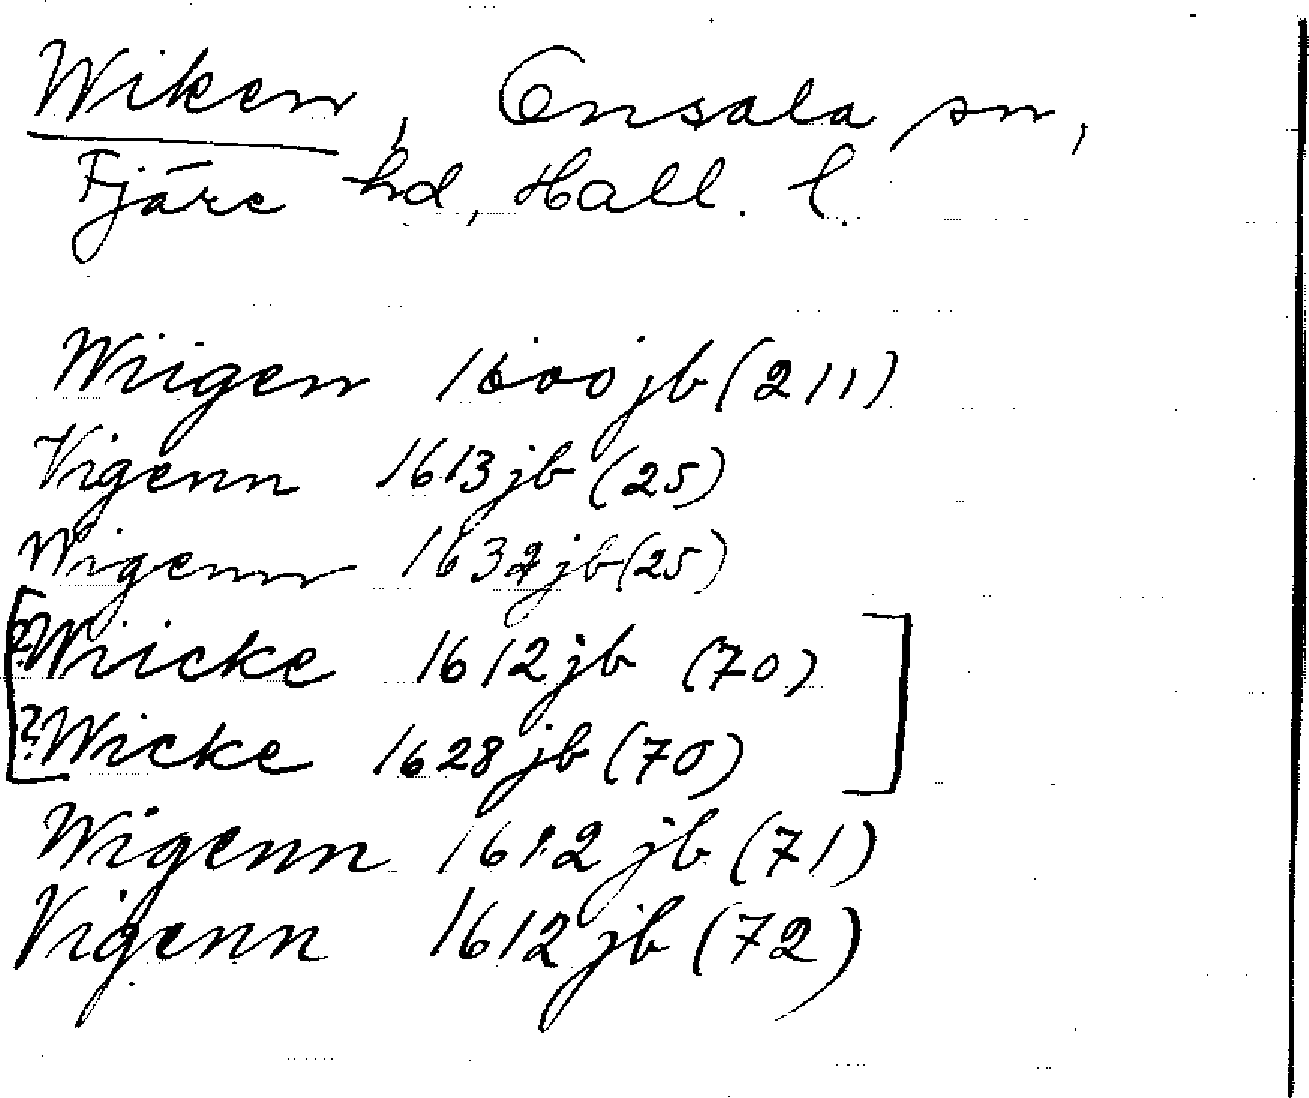 Wiken, Onsala sn,
Fjäre hd, Hall. l.
Wiigen 1600 jb (211)
Vigenn 1613 jb (25)
Wigenn 1632 jb (25)
[?Wiicke 1612 jb (70)
?Wicke 1628 jb (70)]
Wigenn 1612 jb (71)
Vigenn 1612 jb (72)